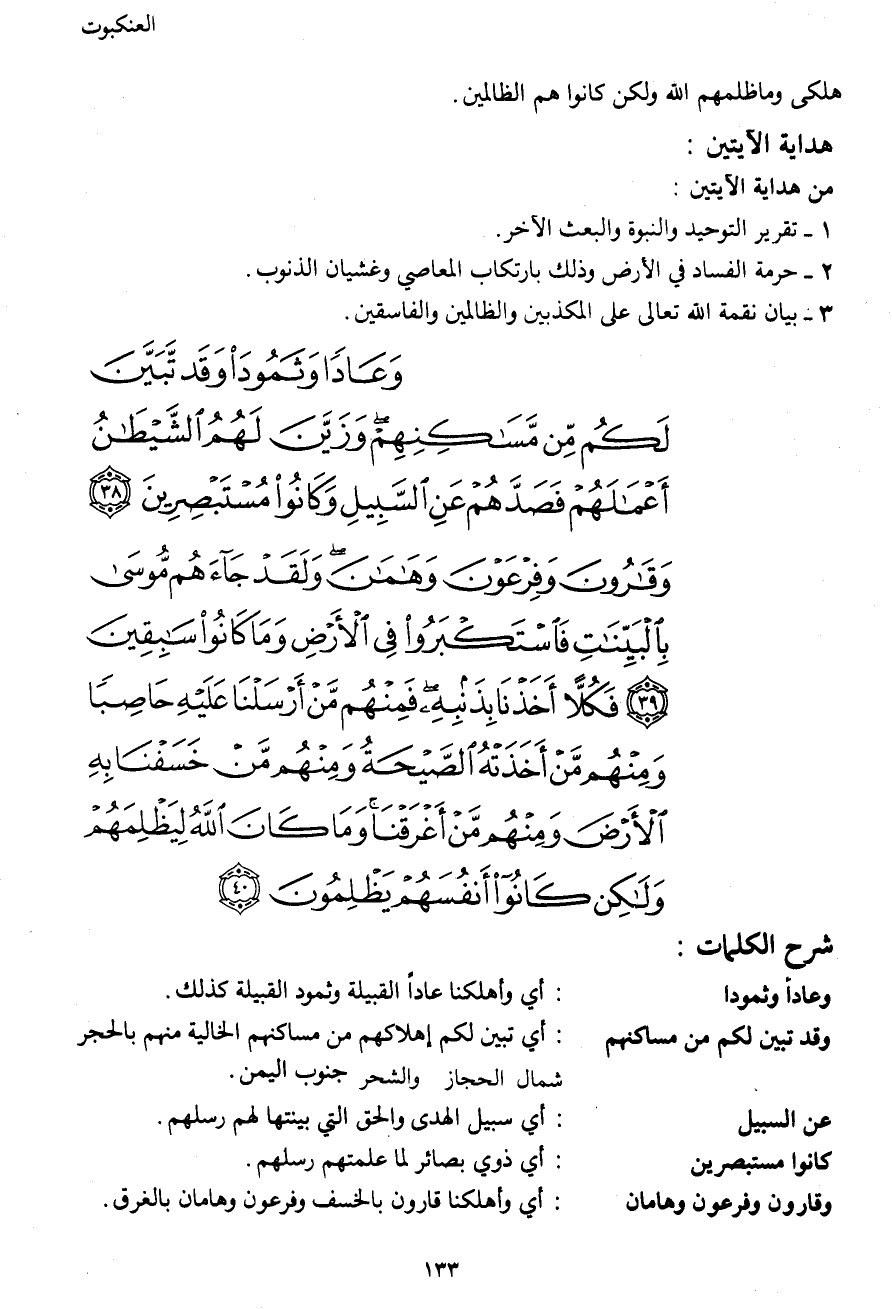 العنكبوت
هلكى وماظلمهم الله ولكن كانوا هم الظالمين.
هداية الآيتين :
من هداية الآيتين :
١ ـ تقرير التوحيد والنبوة والبعث الآخر.
٢ ـ حرمة الفساد في الأرض وذلك بارتكاب المعاصي وغشيان الذنوب.
٣ ـ بيان نقمة الله تعالى على المكذبين والظالمين والفاسقين.
وَعَادًا وَثَمُودَا۟ وَقَد تَّبَيَّنَ
لَكُم مِّن مَّسَـٰكِنِهِمْ ۖ وَزَيَّنَ لَهُمُ ٱلشَّيْطَـٰنُ
أَعْمَـٰلَهُمْ فَصَدَّهُمْ عَنِ ٱلسَّبِيلِ وَكَانُوا۟ مُسْتَبْصِرِينَ ٣٨
وَقَـٰرُونَ وَفِرْعَوْنَ وَهَـٰمَـٰنَ ۖ وَلَقَدْ جَآءَهُم مُّوسَىٰ
بِٱلْبَيِّنَـٰتِ فَٱسْتَكْبَرُوا۟ فِى ٱلْأَرْضِ وَمَا كَانُوا۟ سَـٰبِقِينَ
٣٩ فَكُلًّا أَخَذْنَا بِذَنۢبِهِۦ ۖ فَمِنْهُم مَّنْ أَرْسَلْنَا عَلَيْهِ حَاصِبًا
وَمِنْهُم مَّنْ أَخَذَتْهُ ٱلصَّيْحَةُ وَمِنْهُم مَّنْ خَسَفْنَا بِهِ
ٱلْأَرْضَ وَمِنْهُم مَّنْ أَغْرَقْنَا ۚ وَمَا كَانَ ٱللَّهُ لِيَظْلِمَهُمْ
وَلَـٰكِن كَانُوٓا۟ أَنفُسَهُمْ يَظْلِمُونَ ٤٠
شرح الكلمات :
وعاداً وثمودا : أي وأهلكنا عاداً القبيلة وثمود القبيلة كذلك.
وقد تبين لكم من مساكنهم : أي تبين لكم إهلاكهم من مساكنهم الخالية منهم بالحجر
شمال الحجاز والشحر جنوب اليمن.
عن السبيل : أي سبيل الهدى والحق التي بينتها لهم رسلهم.
كانوا مستبصرين : أي ذوي بصائر لما علمتهم رسلهم.
وقارون وفرعون وهامان : أي وأهلكنا قارون بالخسف وفرعون وهامان بالغرق.
١٣٣